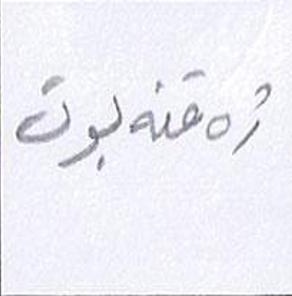 ژەقنەبوت